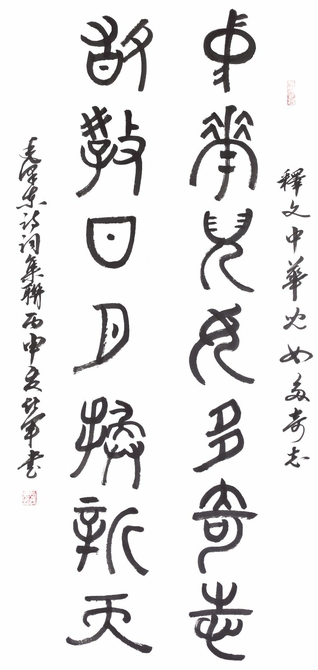 釋文中華兒女多奇志
中華兒女多奇志
敢教日月換新天
毛澤東詩詞集聯丙申軍書